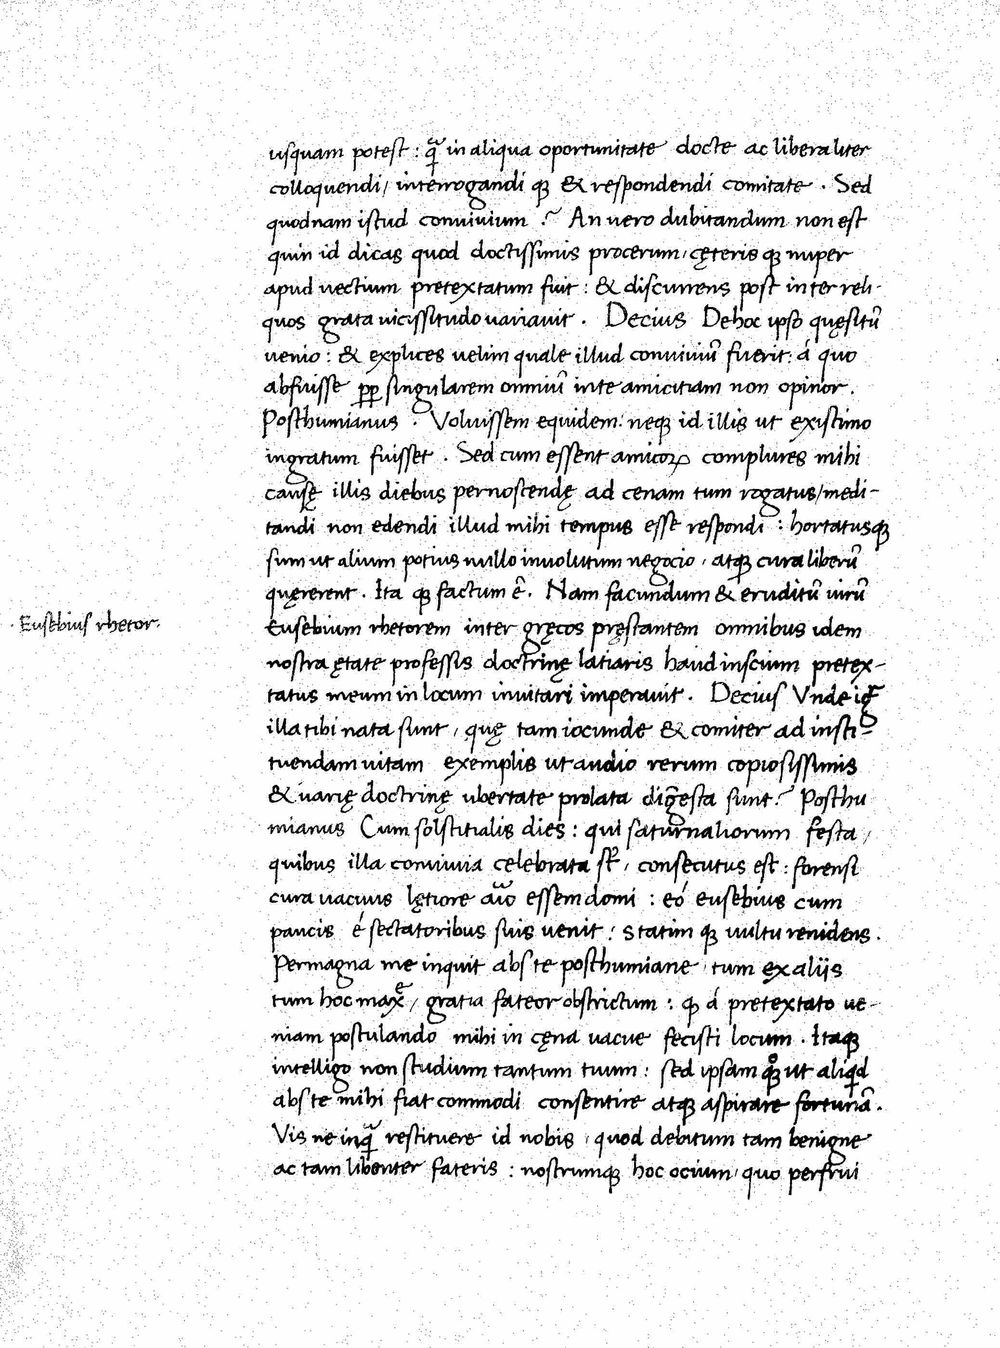 usquam potest : qͣ in aliqua oportunitate docte ac liberaliter
colloquendi / interrogandi qꝫ & respondendi comitate . Sed
quodnam istud convivium ? An vero dubitandum non est
quin id dicas quod doctissimis procerum / cęteris qꝫ nuper
apud vectium pretextatum fuit : & discurrens post inter reli-
quos grata vicissitudo variavit . Decius De hoc ipso quęsitū
venio : & explices velim quale illud conviviū fuerit : á quo
abfuisse ꝓp singularem omniū in te amicitiam non opinor .
Posthumianus . Voluissem equidem : neqꝫ id illis ut existimo
ingratum fuisset . Sed cum essent amicoꝝ complures mihi
causę illis diebus pernoscendę ad cenam tum rogatus / medi-
tandi non edendi illud mihi tempus esse respondi : hortatusqꝫ
sum ut alium potius nullo involutum negocio / atqꝫ cura liberū
quęrerent . Ita qꝫ factum ē . Nam facundum & eruditū virū
· Eusebius rhetor ·
Eusebium rhetorem inter gręcos pręstantem omnibus idem
nostra ętate professis doctrinę latiaris haud inscium pretex-
tatus meum in locum invitari imperavit . Decius Vnde igͥ
illa tibi nata sunt / quę tam iocunde & comiter ad insti-
tuendam vitam exemplis ut audio rerum copiosissimis
& varię doctrinę ubertate prolata digesta sunt ? Posthu
mianus Cum solstitialis dies : qui saturnaliorum festa /
quibus illa convivia celebrata st̄ / consecutus est : forensi
cura vacuus lętiore aīo essem domi : eó eusebius cum
paucis é sectatoribus suis venit : statim qꝫ vultu renidens .
Permagna me inquit abs te posthumiane / tum ex aliis
tum hoc maxē / gratia fateor obstrictum : qꝫ á pretextato ve-
niam postulando mihi in cęna vacue fecisti locum . Itaqꝫ
intelligo non studium tantum tuum : sed ipsam qꝫͦ ut aliqd
abs te mihi fiat commodi consentire atqꝫ aspirare fortunā .
Vis ne inqͣ restituere id nobis / quod debitum tam benigne
ac tam libenter fateris : nostrumqꝫ hoc ocium / quo perfrui